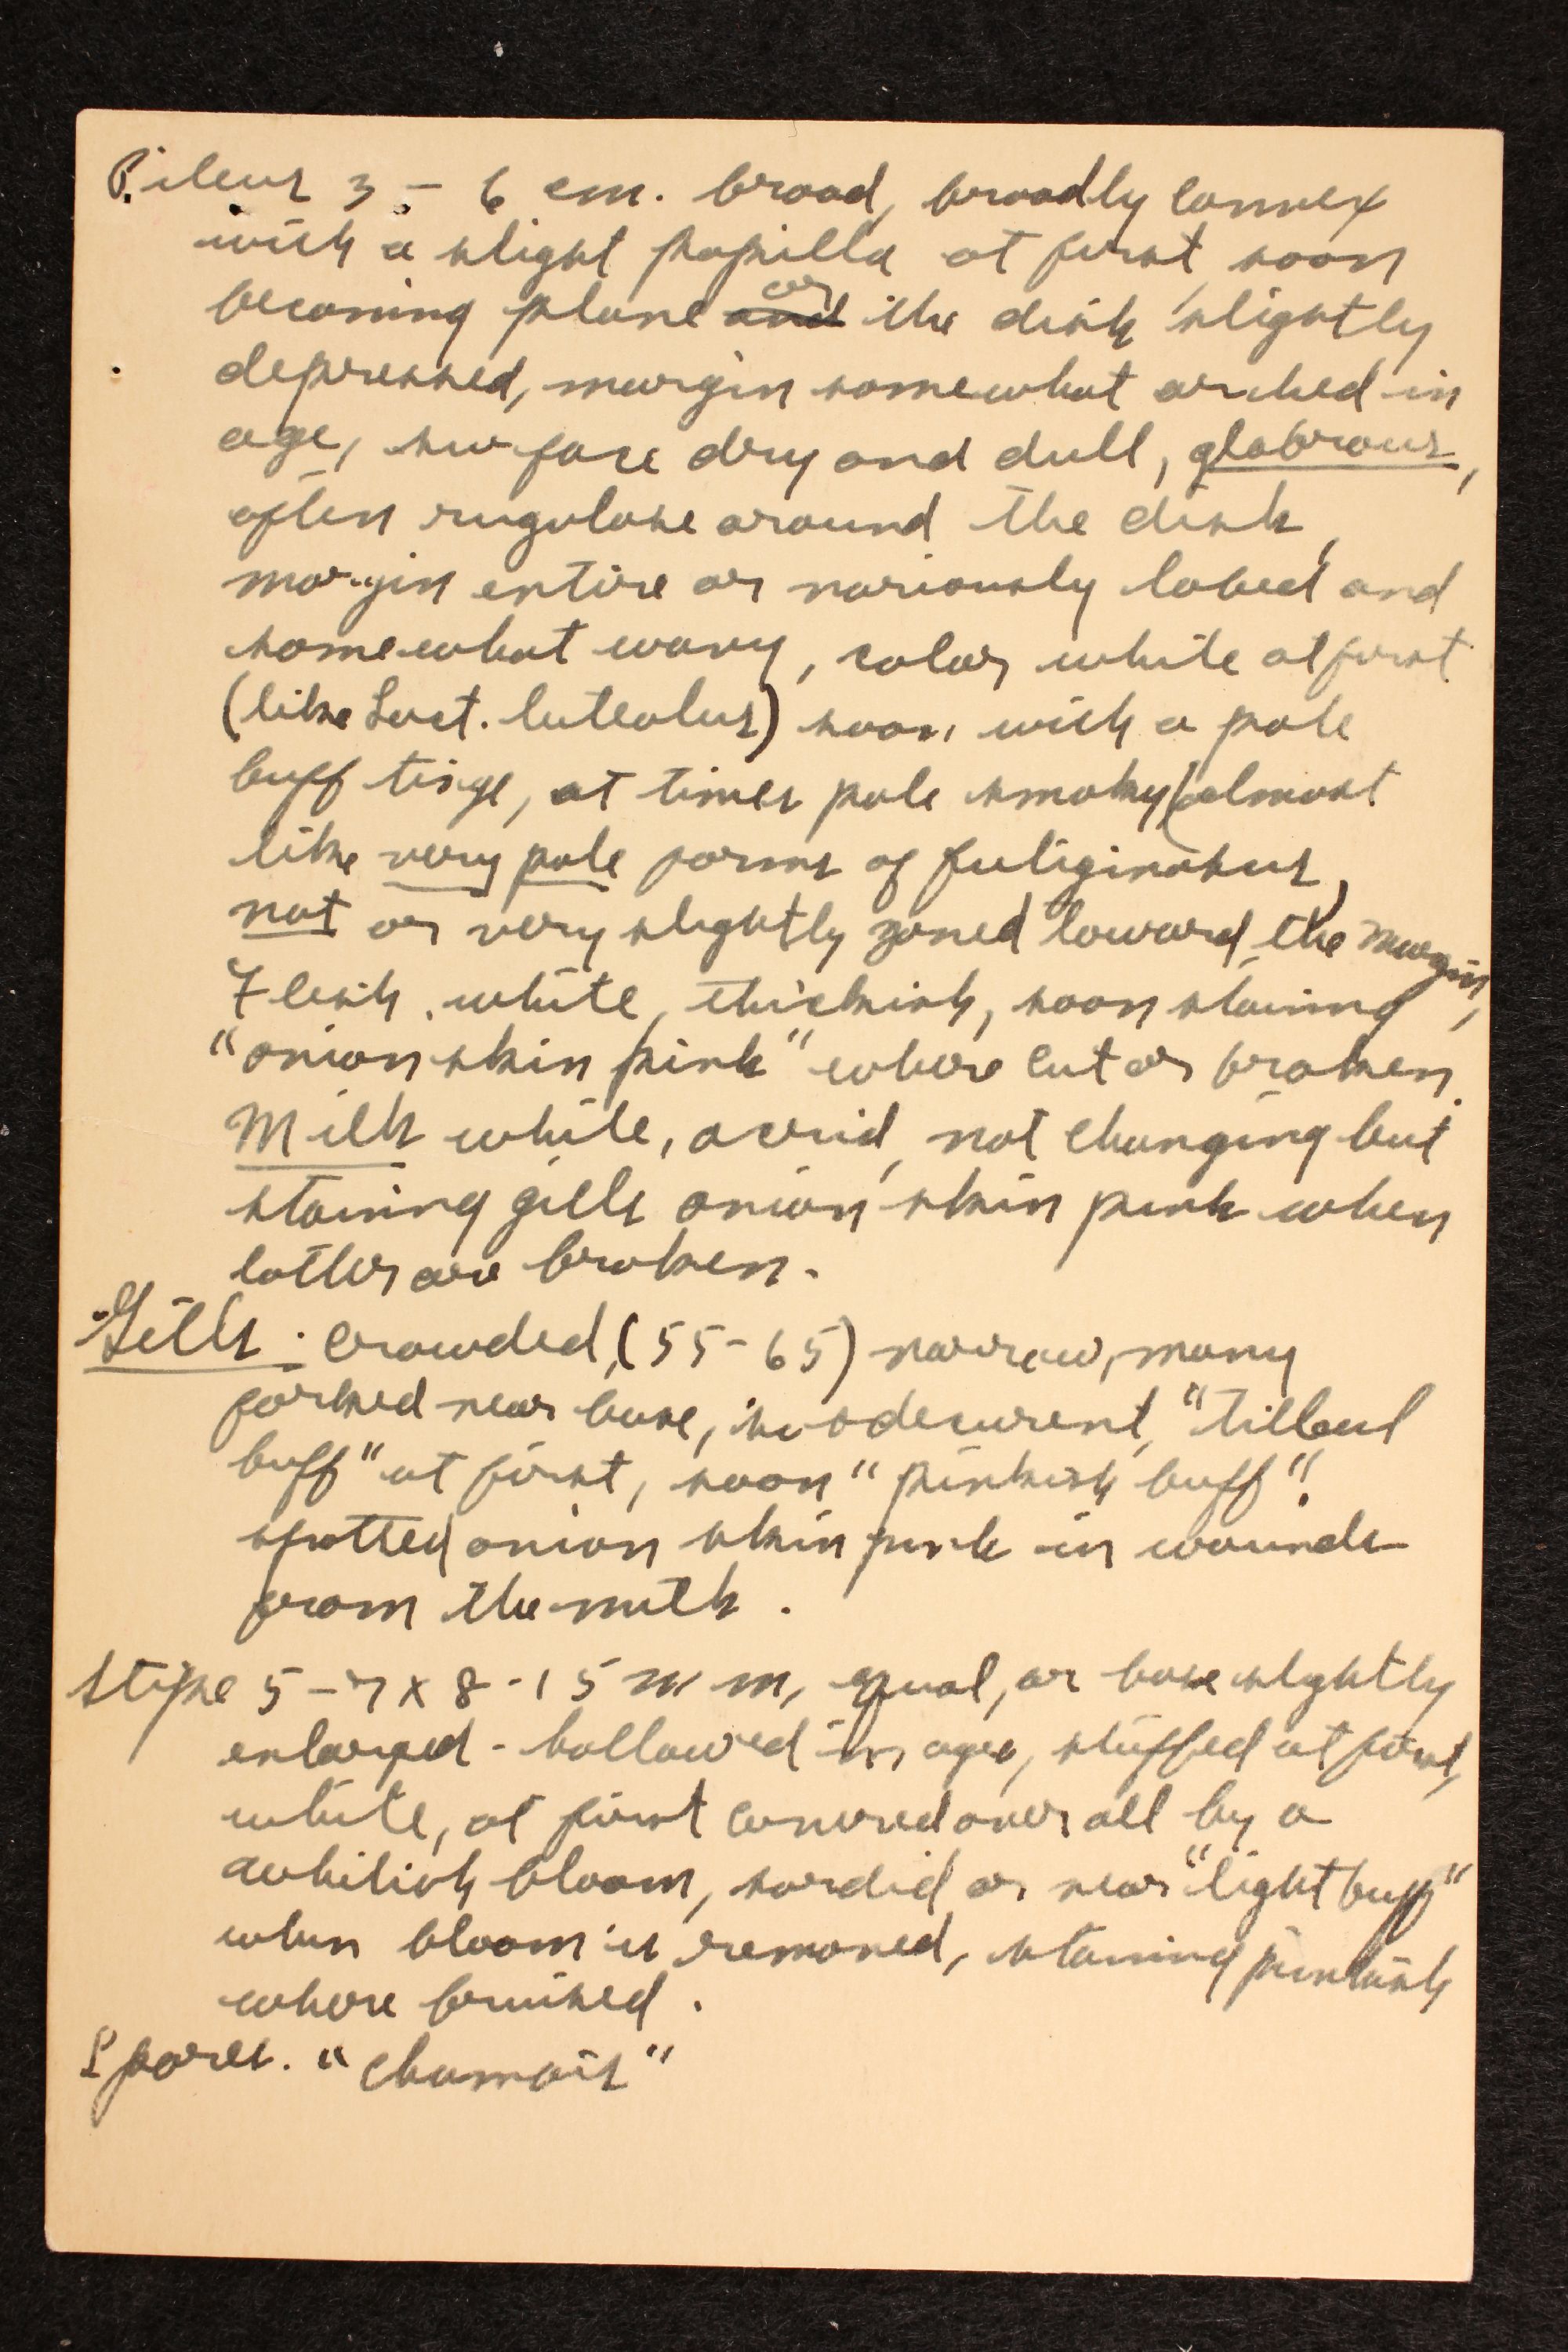 Pileus 3 - 6 cm. broad, broadly convex
with a slight papilla at first, soon
becoming plane and or the disk slightly
depressed, margin somewhat arched in
age, surface dry and dull, glabrous,
often rugulose around the disk,
margin entire or variously lobed and
somewhat wavy, color white at first
(like Lact. luteolus) soon with a pale
buff tinge, at times pale smoky (almost
like very pale forms of fuliginosus,
not or very slightly zoned toward the margin,
Flesh white, thickish, soon staining
"onion skin pink" where cut or broken.
Milk white, acrid, not changing but
staining gills onion skin pink when
latter are broken.
Gills. crowded, (55-65) narrow, many
forked near base, subdecurrent, "tilleul
buff" at first, soon "pinkish buff".
spotted onion skin pink in wounds
from the milk.
Stipe 5-7 x 8-15 mm, equal, or base slightly
enlarged - hollowed in age, stuffed at first,
white, at first covered over all by a
whitish bloom, sordid or near "light buff"
when bloom is removed, staining pinkish
where bruised.
Spores. "chamois"